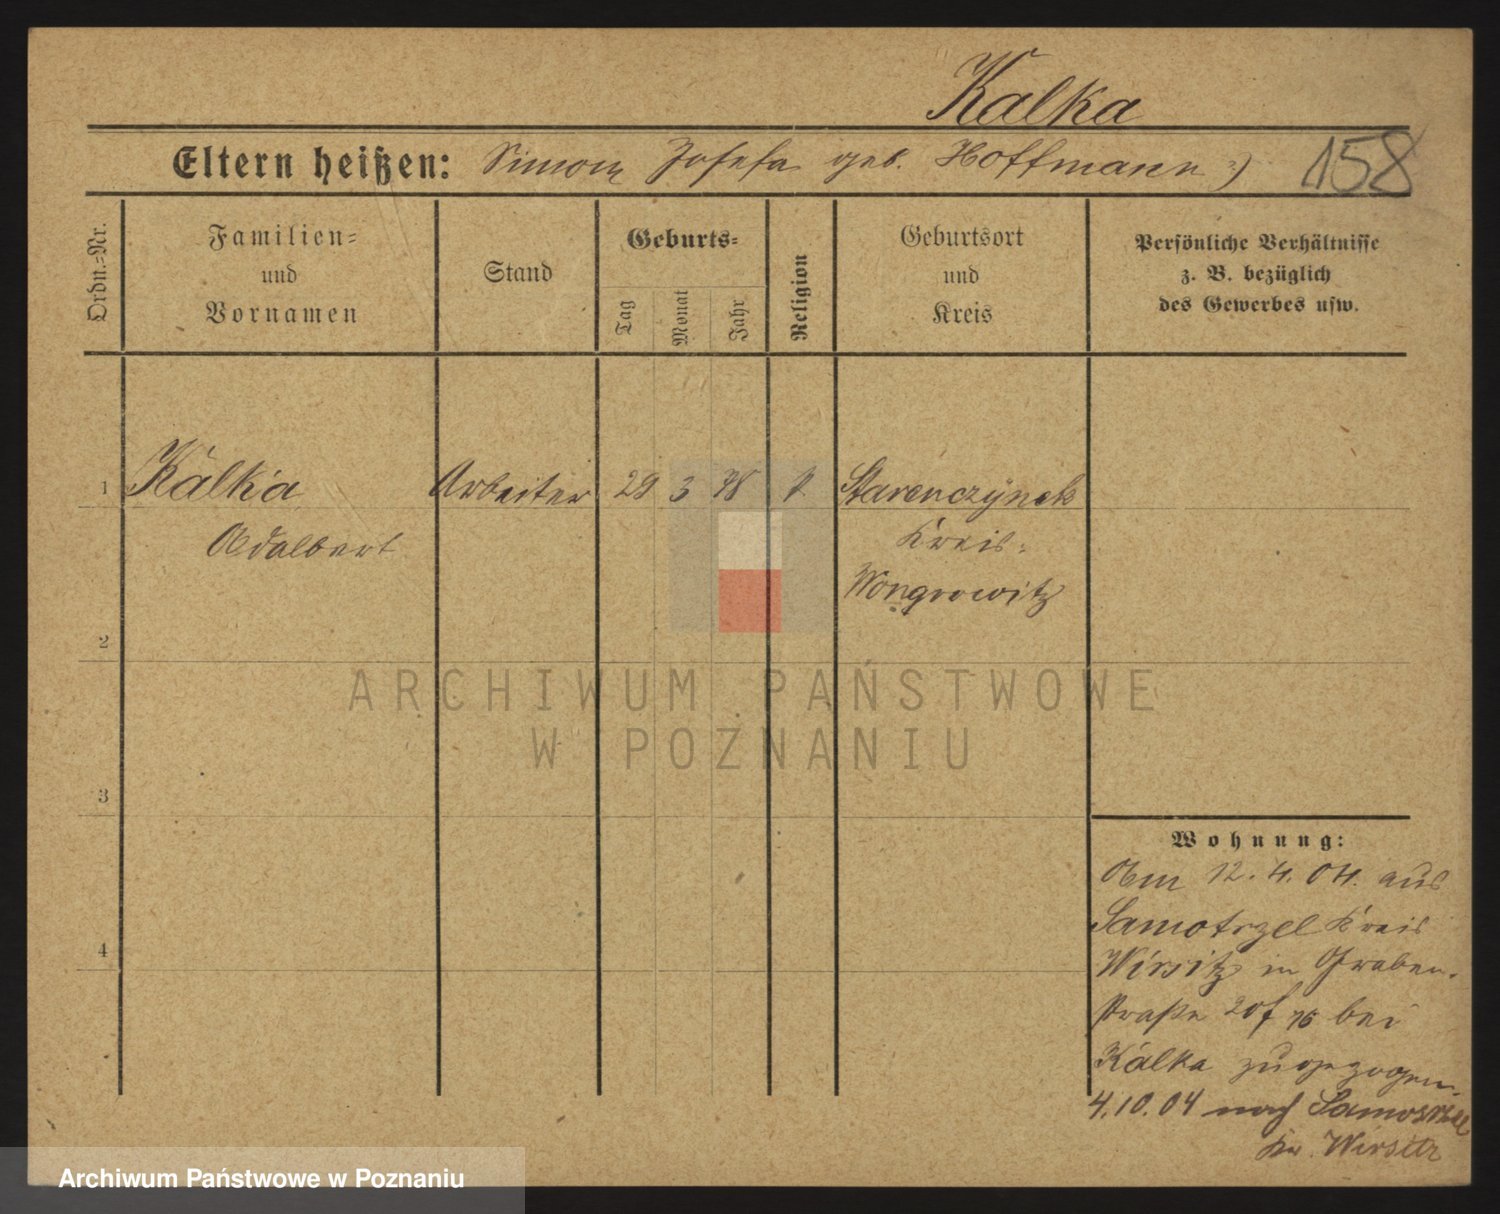 Kalka
Eltern heißen: Simon Josefa geb. Hoffmann
158
Ordn.-Nr.
Familien-
und
Vornamen
Stand
Geburts-
Tag
Monat
Jahr
Religion
Geburtsort
und
Kreis
Persönliche Verhältnisse
z. B. bezüglich
des Gewerbes usw.
1 Kalka Arbeiter 29 3 78 Starenczynek
Adalbert Kreis
Wongrowitz
2
3
4
ARCHIWUM PAŃSTWOWE
W POZNANIU
Wohnung:
Am 12. 4. 04. aus
Samotrzel Kreis
Wirsitz in Graben-
straße bei
Kalka zugezogen.
4.10.04 nach
Kr. Wirsitz
Archiwum Państwowe w Poznaniu